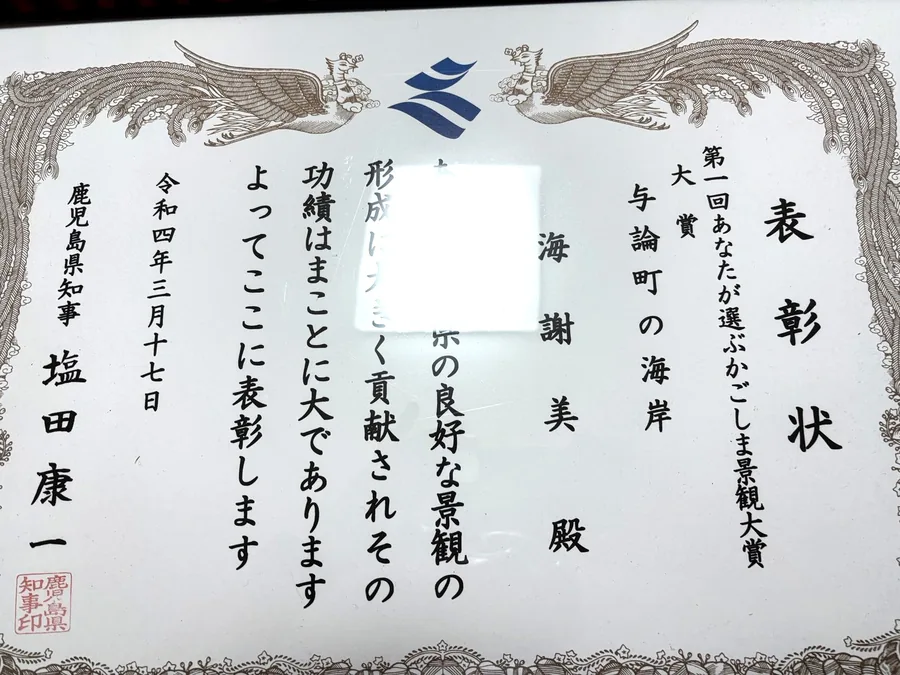 表彰状
第一回あなたが選ぶかごしま景観大賞
大賞
与論町の海岸
海謝美殿
県の良好な景観の
形成に大きく貢献されその
功績はまことに大であります
よってここに表彰します
令和四年三月十七日
鹿児島県知事 塩田康一
鹿児島県
知事印